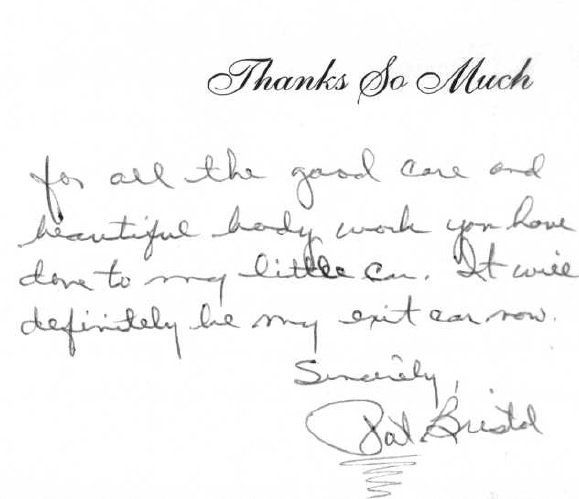 Thanks So Much
for all the good care and
beautiful body work you have
done to my little car. It will
definitely be my exit car now.
Sincerely,
Pat Bristol